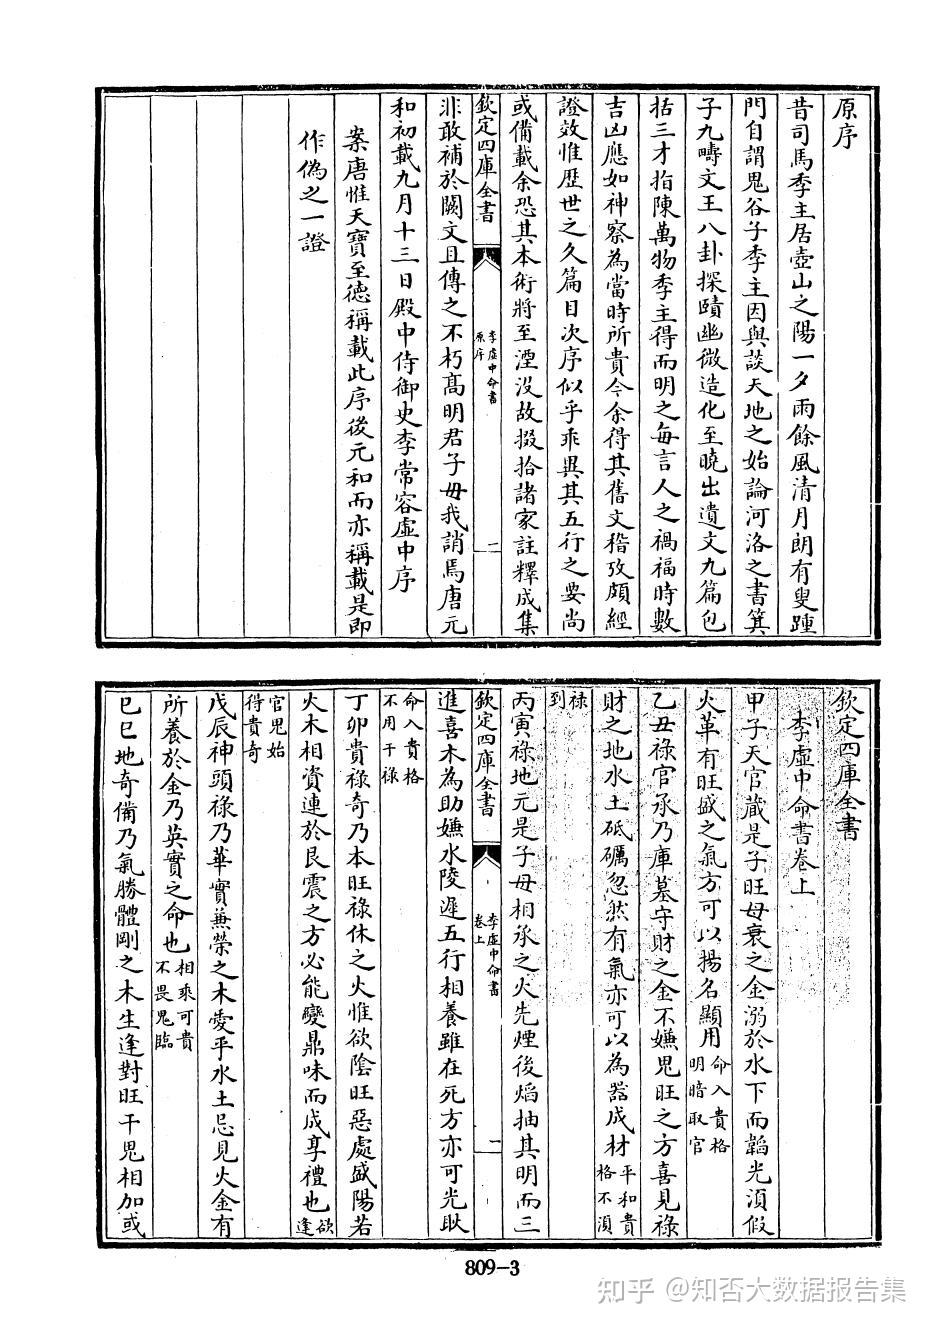 原序
昔司馬季主居壺山之陽一夕雨餘風清月朗有叟踵
門自謂鬼谷子季主因與談天地之始論河洛之書箕
子九疇文王八卦探賾幽微造化至曉出遺文九篇包
括三才指陳萬物季主得而明之每言人之禍福時數
吉凶應如神察為當時所貴今余得其舊文稽攷頗經
證效惟歷世之久篇目次序似乎乖異其五行之要尚
或備載余恐其本術將至湮沒故掇拾諸家註釋成集
欽定四庫全書
李虛中命書
原序
一
非敢補於闕文且傳之不朽高明君子毋我誚焉唐元
和初載九月十三日殿中侍御史李常容虛中序
案唐惟天寶至德稱載此序後元和而亦稱載是即
作偽之一證
欽定四庫全書
李虛中命書卷上
甲子天官藏是子旺母衰之金溺於水下而韜光須假
火革有旺盛之氣方可以揚名顯用命入貴格
明暗取官
乙丑祿官承乃庫墓守財之金不嫌鬼旺之方喜見祿
財之地水土砥礪忽然有氣亦可以為器成材平和貴
格不須
祿
到
丙寅祿地元是子母相承之火先煙後焰抽其明而三
欽定四庫全書
李虛中命書
卷上
一
進喜木為助嫌水陵遲五行相養雖在死方亦可光耿
命入貴格
不用干祿
丁卯貴祿奇乃本旺祿休之火惟欲陰旺惡處盛陽若
火木相資連於艮震之方必能變鼎味而成享禮也欲
逢
官鬼始
得貴奇
戊辰神頭祿乃華實兼榮之木愛乎水土忌見火金有
所養於金乃英實之命也相乘可貴
不畏鬼臨
己巳地奇備乃氣勝體剛之木生逢對旺干鬼相加或
809-3
知乎 @知否大数据报告集